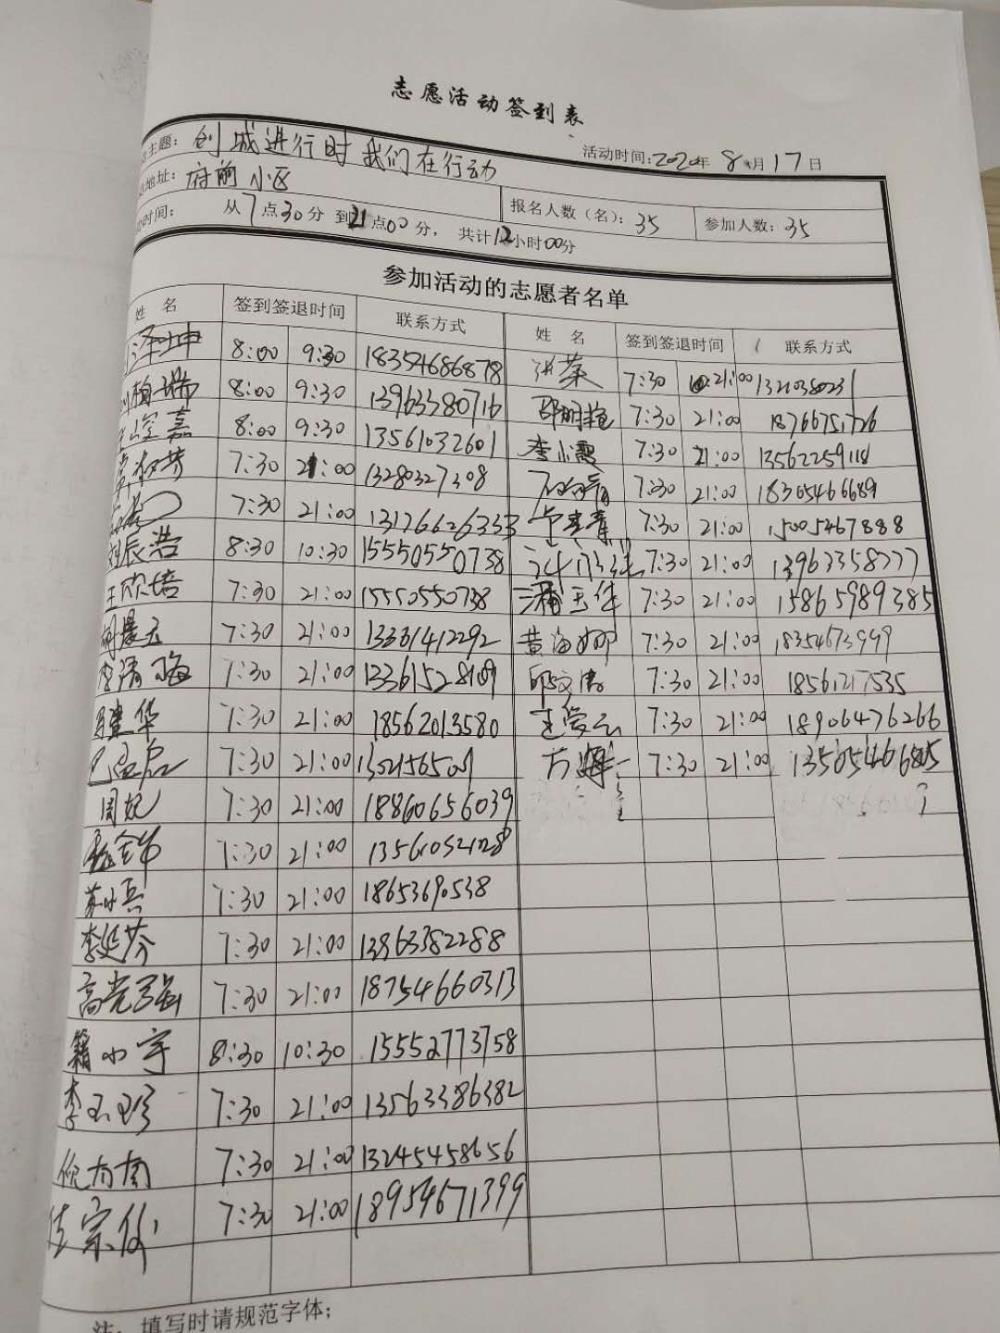 志愿活动签到表
主题：创城进行时 我们在行动 活动时间：2020年8月17日
地址：府前小区 报名人数（名）：35 参加人数：35
时间：从7点30分 到21点00分，共计12小时00分
参加活动的志愿者名单
姓 名 签到签退时间 联系方式 姓 名 签到签退时间 联系方式
8:00 9:30 18354686878 7:30 21:00
8:00 9:30 13963380716 7:30 21:00 18766751726
8:00 9:30 13561032601 李小霞 7:30 21:00 13562259118
7:30 21:00 13280327308 7:30 21:00 18365466689
7:30 21:00 13176626333 7:30 21:00 15005467888
刘辰浩 8:30 10:30 15550550738 7:30 21:00 13963358777
王欣培 7:30 21:00 15550550738 7:30 21:00 15865989385
7:30 21:00 13361412292 黄海娜 7:30 21:00 18354673999
李清海 7:30 21:00 13361528109 邱文涛 7:30 21:00 18561217535
建华 7:30 21:00 18562013580 王爱云 7:30 21:00 18906476266
7:30 21:00 方 7:30 21:00
周妃 7:30 21:00 18860656039
7:30 21:00 13561052128
苏小兵 7:30 21:00 18653690538
李延芬 7:30 21:00 13963382288
高光强 7:30 21:00 18754660313
籍小宇 8:30 10:30 15552773758
李玉珍 7:30 21:00 13563386382
倪有南 7:30 21:00 13245458656
7:30 21:00 18954671399
注：填写时请规范字体；